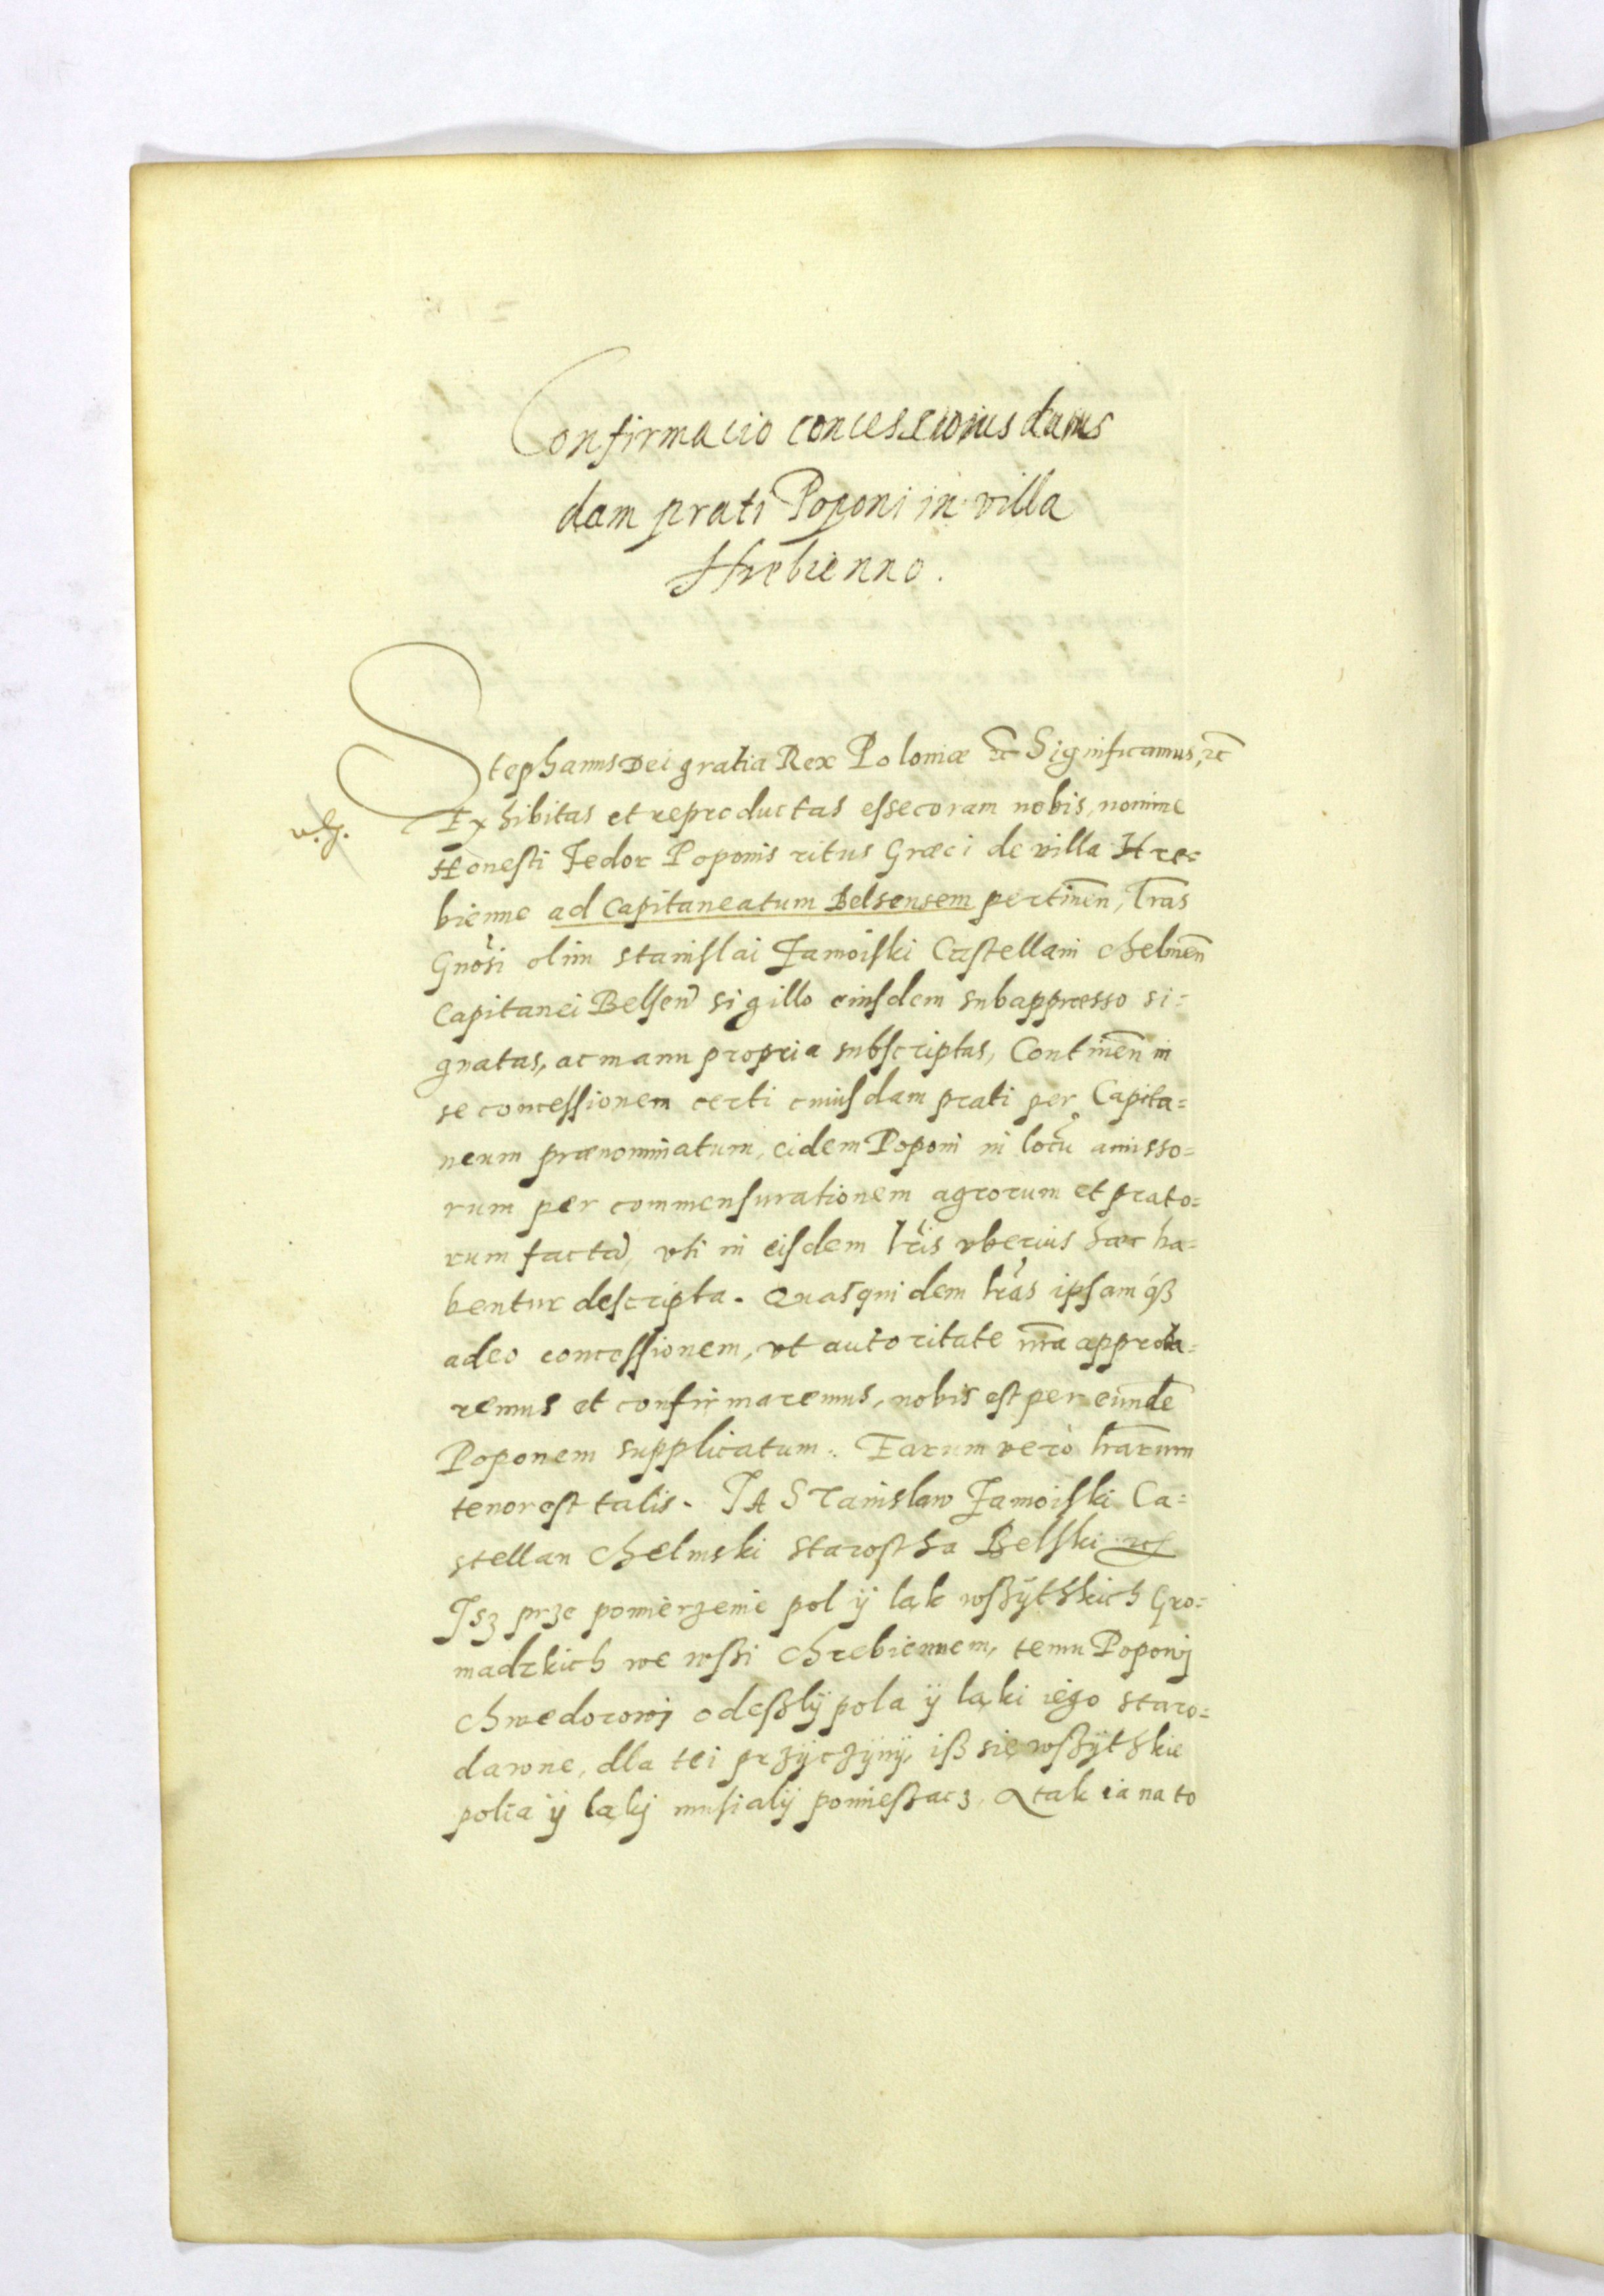 Confirmacio concessionis damus
dam prati Poponi in villa
Hrebienno.
Stephanus Dei gratia Rex Poloniæ etc Significamus, etc
Exhibitas et reproductas esse coram nobis, nomine
Honesti Fedor Poponis ritus Græci de villa Hre=
bienne ad Capitaneatum Belsensem pertineñ, lr̃as
Gnosi olim Stanislai Zamoiski Castellani Chelmeñ
Capitanei Belseñ sigillo eiusdem subappresso si=
gnatas, ac manu propria subscriptas, Contineñ in
se concessionem certi cuiusdam prati per Capita=
neum prænominatum, eidem Poponi in locũ amisso=
rum per commensurationem agrorum et prato=
rum factã, vti in eisdem lr̃is vberius hæc ha=
bentur descripta. Quasquidem lr̃as ipsamqß
adeo concessionem, vt autoritate nr̃a approba=
remus et confirmaremus, nobis est per eundẽ
Poponem supplicatum. Earum verò lr̃arum
tenor est talis. JA Stanislaw Zamoiski Ca=
stellan Chelmski Starostha Belski etc
Jsz prze pomierzenie pol ÿ lak wssÿthkich Gro=
madzkich we wssi Chrebiennem, temu Poponj
Chwedorowj odesslÿ pola ÿ laki iego staro=
dawne, dla tei przÿczÿnÿ, iß się wssÿthkie
polia ÿ lakj musialÿ pomießacz, A tak ia na to